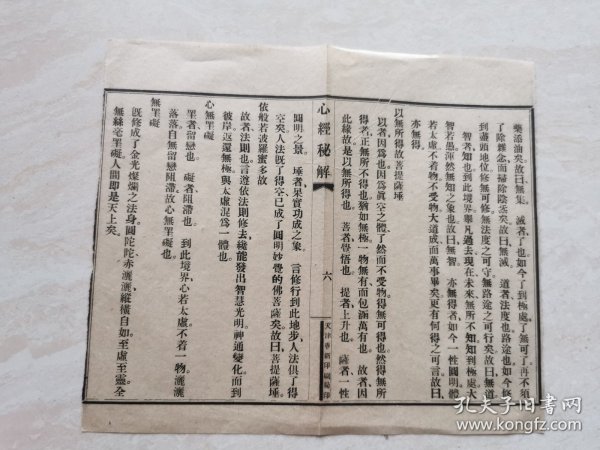 藥添油矣故曰無集　滅者了也如今了到極處了無可了再不須
了除雜念而掃除陰柔矣故曰無滅　道者法度也路途也如今修
到盡頭地位修無可修無法度之可守無路途之可行矣故曰無道
智者知也到此境界舉凡過去現在未來無所不知知到極處大
智若愚渾然無知之象也故曰無智　亦無得者如今一性圓明體
若太虛不着物不受物大道成而萬事畢矣更有何得之可言故曰
亦無得。
以無所得故菩提薩埵
以者因爲也因爲眞空之體了然而不受物得無可得也然得無所
得者正無所不得也猶如無極一物無有而包涵萬有也。故者因
此緣故是以無所得也。菩者覺悟也。提者上升也。薩者一性
心經秘解
六
天津華新印刷局印
圓明之景。埵者果實功成之象。言修行到此地步人法俱了得
空矣人法旣了得空已成了圓明妙覺的佛菩薩矣故曰菩提薩埵
依般若波羅蜜多故
故者法則也言遵依法則修去纔能發出智慧光明神通變化而到
彼岸返還無極與太虛混爲一體也。
心無罣礙
罣者留戀也。礙者阻滯也。到此境界心若太虛不着一物灑灑
落落自無留戀阻滯故心無罣礙也。
無罣礙
旣修成了金光燦爛之法身圓陀陀赤灑灑縱橫自如至虛至靈全
無絲毫罣礙人間即是天上矣。
孔夫子旧书网
www.kongfz.com